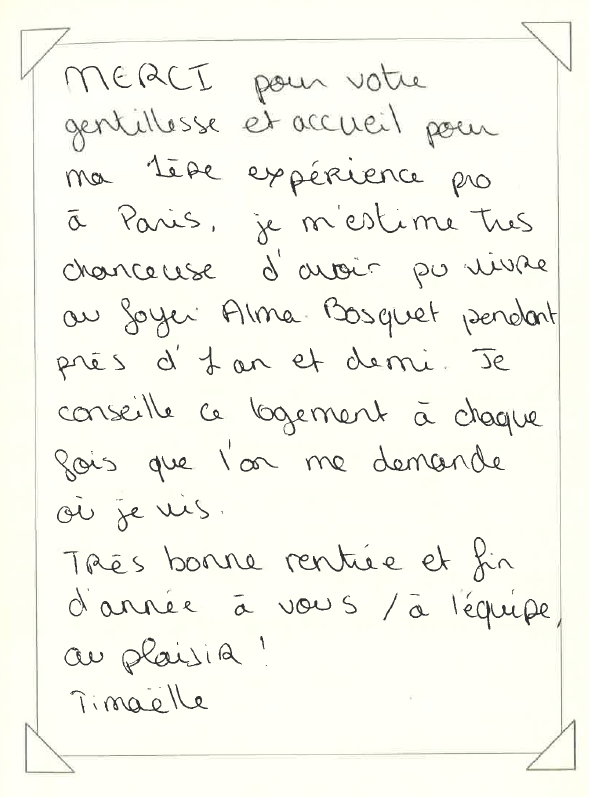 MERCI pour votre
gentillesse et accueil pour
ma 1ère expérience pro
à Paris, je m'estime très
chanceuse d'avoir pu vivre
au foyer Alma Bosquet pendant
près d'1 an et demi. Je
conseille ce logement à chaque
fois que l'on me demande
où je vis.
Très bonne rentrée et fin
d'année à vous / à l'équipe,
au plaisir !
Timaëlle